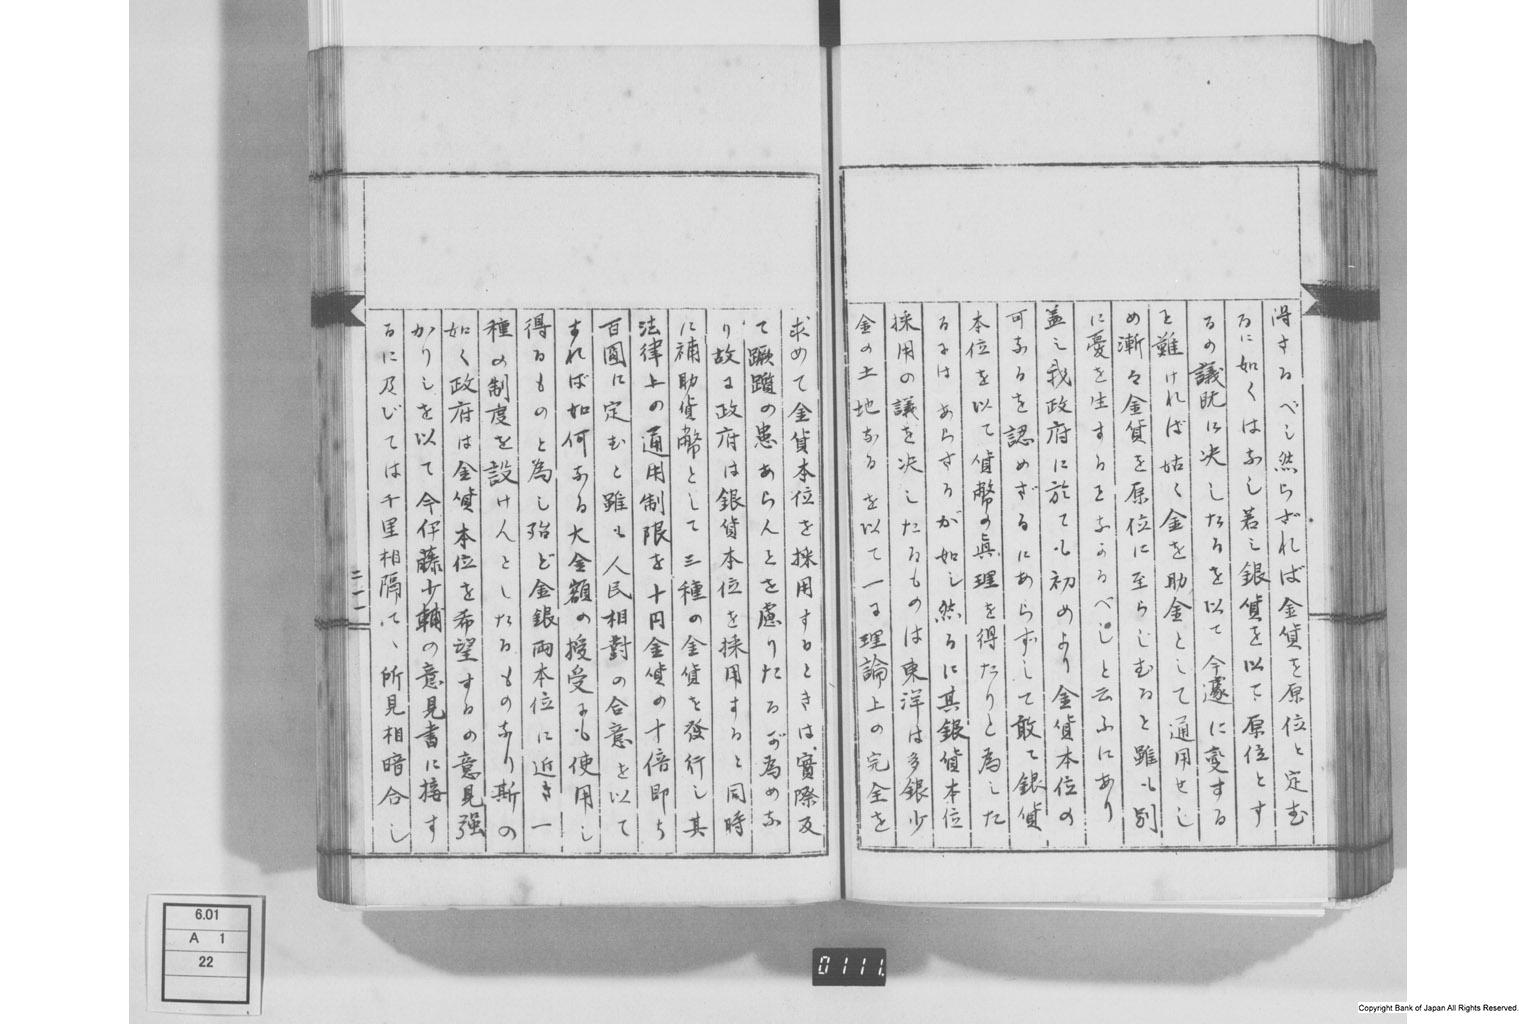 得する べし然らざれば金貨を原位と定む
るに如くはなし若し銀貨を以て原位とす
るの議既に决したるを以て今遽に変する
と難ければ姑く金を助金として通用せし
め漸々金貨を原位に至らしむると雖も別
に憂を生することなかるべしと云ふにあり
蓋し我政府に於ても初めより金貨本位の
可なるを認めざるにあらずして敢て銀貨
本位を以て貨幣の眞理を得たりと為した
るには あらするが如し然るに其銀貨本位
採用の議を决したるものは東洋は多銀少
金の土地なるを以て一に理論上の完全を
求めて金貨本位を採用するときは實際反
て蹶躓の患あらんとを慮りたるが為めな
り故に政府は銀貨本位を採用すると同時
に補助貨幣として三種の金貨を發行し其
法律上の通用制限を十円金貨の十倍即ち
百圓に定むと雖も人民相對の合意を以て
すれば如何なる大金額の授受にも使用し
得るものと為し殆ど金銀両本位に近き一
種の制度を設けんとしたるものなり斯の
如く政府は金貨本位を希望するの意見強
かりしを以て今伊藤少輔の意見書に接す
るに及びては千里相隔て、所見相暗合し
二一一
6.01
A 1
22
0111.
Copyright Bank of Japan All Rights Reserved.